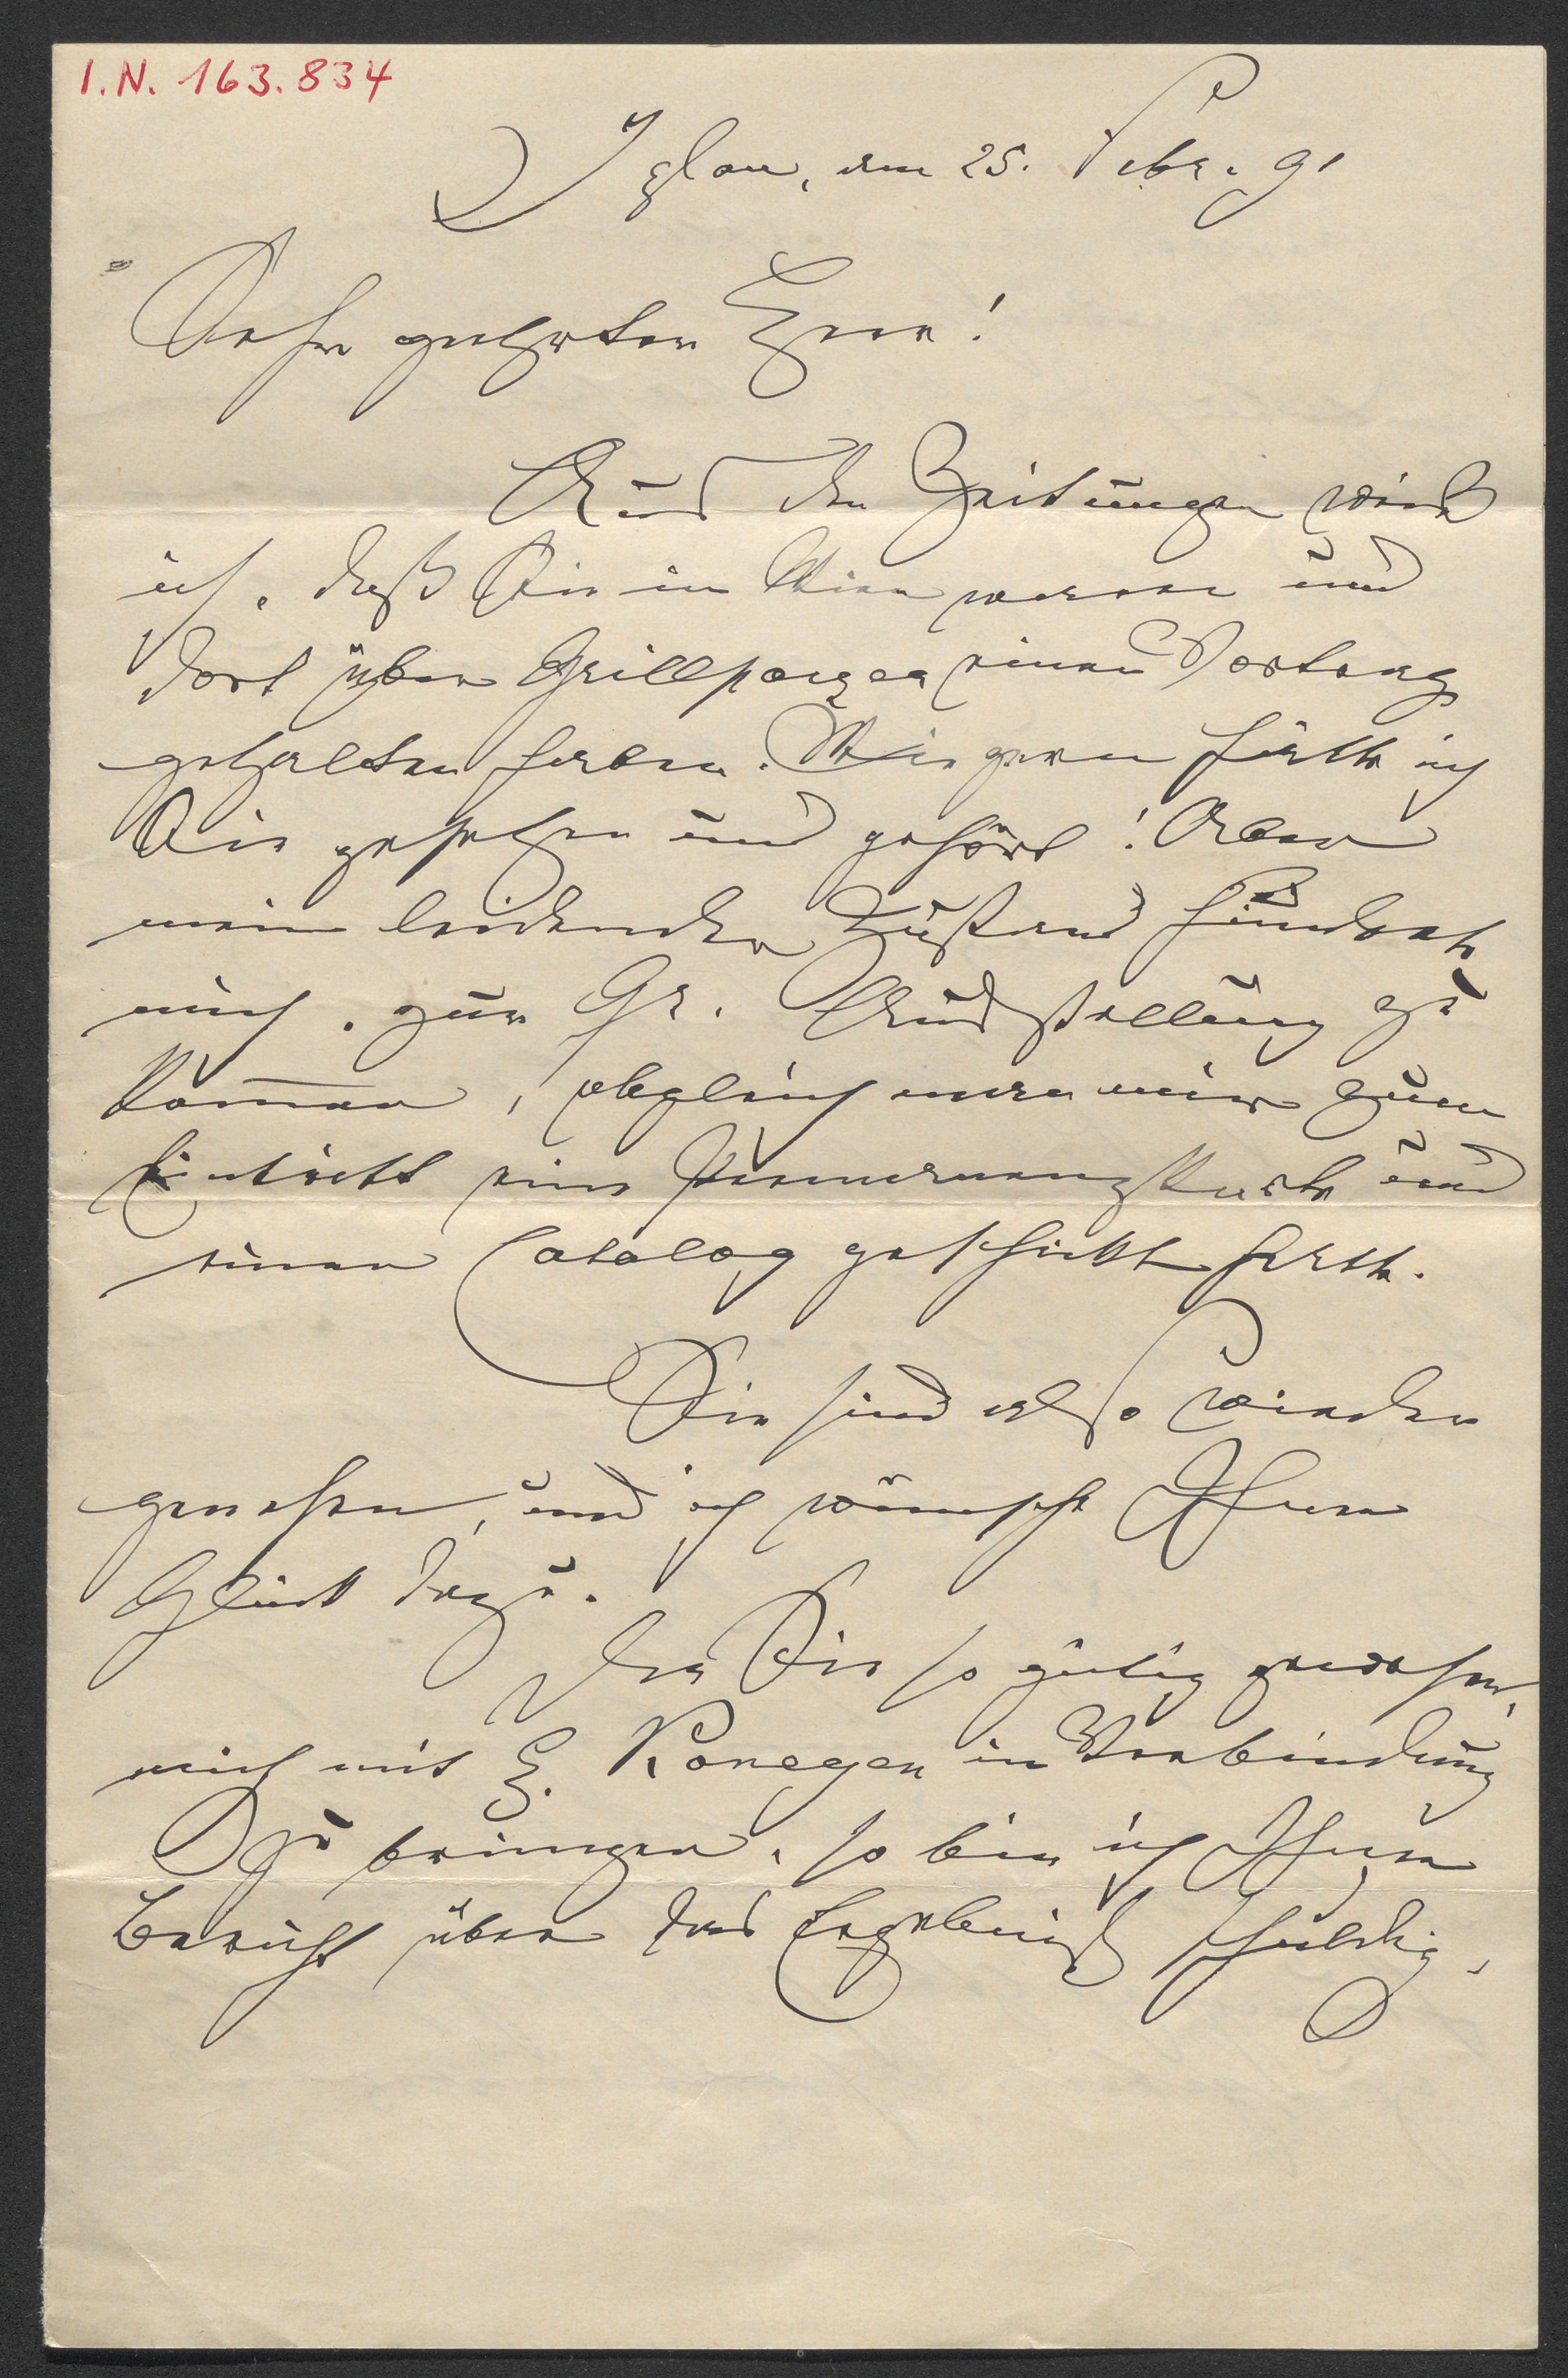 I.N. 163.834
Iglau, den 25. Febr. 91
Sehr geehrter Herr!
Aus den Zeitungen weiß
ich, daß Sie in Wien waren und
dort über Grillparzer einen Vortrag
gehalten haben. Wie gern hätte ich
Sie gesehen und gehört! Aber
mein leidender Zustand hinderte
mich, zur Gr. Ausstellung zu
kom̅en, obgleich man mir zum
Eintritt eine Permanenzkarte und
einen Catalog geschickt hatte.
Sie sind also wieder
genesen, und ich wünsche Ihnen
Glück dazu.
Da Sie so gütig gewesen,
mich mit H. Konegen in Verbindung
zu bringen, so bin ich Ihnen
Bericht über das Ergebniß schuldig.